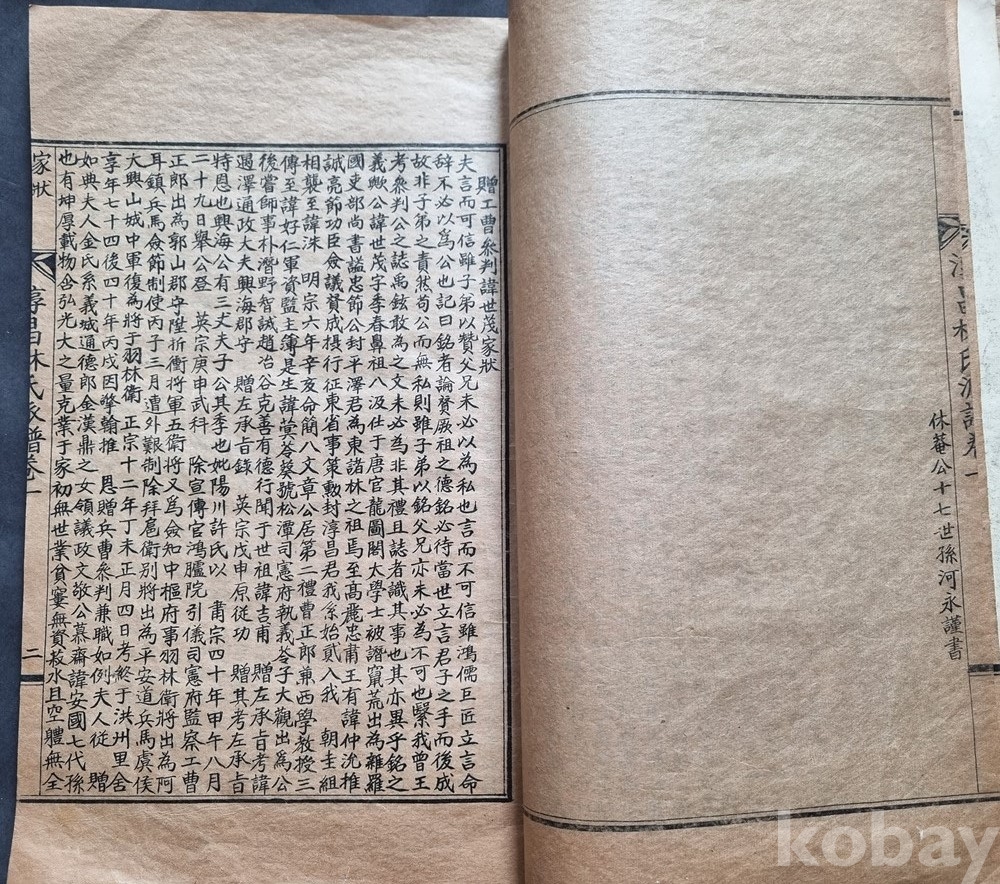 淳昌林氏派譜卷一
休菴公十七世孫河永謹書
贈工曹參判諱世茂家狀
夫言而可信雖子弟以贊父兄未必以為私也言而不可信雖鴻儒巨匠立言命
辞不必以為公也記曰銘者論贊厥祖之德銘必待當世立言君子之手而後成
故非子弟之責然苟公而無私則雖子弟以銘父兄亦未必為不可也緊我曾王
考參判公之誌禹鉉敢為之文未必為非其禮且誌者識其事也其亦異乎銘之
義歟公諱世茂字季春鼻祖八汲仕于唐官龍圖閣太學士被譖竄荒出為雜羅
國吏部尚書謚忠節公封平澤君為東諸林之祖焉至高麗忠肅王有諱仲沇推
誠亮節功臣僉議贊成提行征東省事策勳封淳昌君我系始貳入我 朝圭組
相襲至諱洙 明宗六年辛亥命簡八文章公居第二禮曹正郎兼西學教授三
傳至諱好仁軍資監主簿是生諱蓂苓葵號松潭司憲府執義苓子大觀出為公
後嘗師事朴潛野智誠趙冶谷克善有德行聞于世祖諱吉甫 贈左承旨考諱
遇澤通政大夫興海郡守 贈左承旨錄 英宗戊申原從功 贈其考左承旨
特恩也興海公有三丈夫子公其季也妣陽川許氏以 肅宗四十年甲午八月
二十九日舉公登 英宗庚申武科 除宣傳官鴻臚院引儀司憲府監察工曹
正郎出為郭山郡守陞折衝將軍五衛將又為僉知中樞府事羽林衛將出為阿
耳鎮兵馬僉節制使丙子三月遭外艱制除拜扈衛別將出為平安道兵馬虞侯
大興山城中軍復為將于羽林衛 正宗十二年丁未正月四日考終于洪州里舍
享年七十四後四十年丙戌因擎翰推 恩贈兵曹參判兼職如例夫人從 贈
如典夫人金氏系義城通德郎金漢鼎之女領議政文敬公慕齋諱安國七代孫
也有坤厚載物含弘光大之量克業于家初無世業貧窶無資菽水且空軆無全
家狀
淳昌林氏派譜卷一
二
kobay